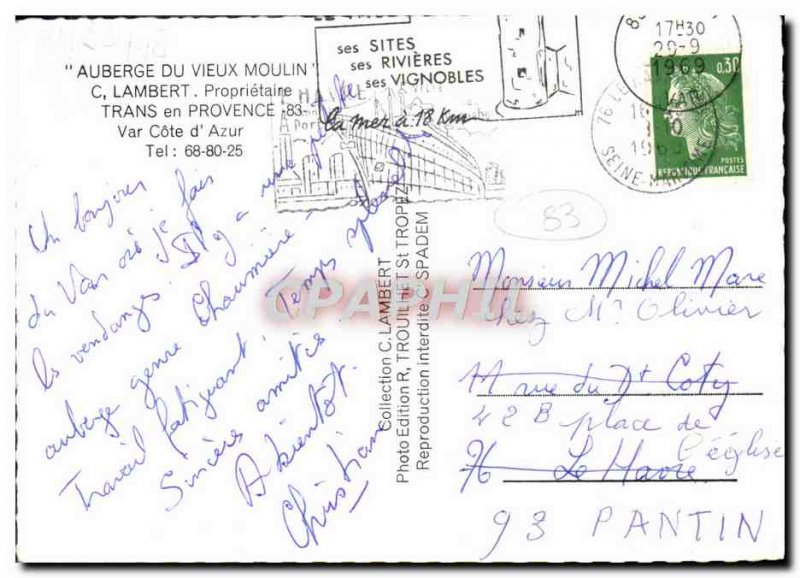 "AUBERGE DU VIEUX MOULIN"
C, LAMBERT . Propriétaire
TRANS en PROVENCE -83-
Var Côte d'Azur
Tel : 68-80-25
ses SITES
ses RIVIÈRES
ses VIGNOBLES
la mer à 18 Km
17H30
20-9
1969
76 LE
SEINE-MARITIME
0,30
POSTES
REPUBLIQUE FRANÇAISE
83
Un bonjour
du Var où je fais
les vendanges. Il y a une petite
auberge genre Chaumière,
Travail fatiguant. Temps splendide
Sincères amitiés
A bientôt.
Christian
Collection C. LAMBERT
Photo Edition R, TROUILHET St TROPEZ
Reproduction interdite © SPADEM
CPAPHIL
Monsieur Michel Mare
chez Mr Olivier
11 rue du Dr Coty
42B place de
l'église
76 Le Havre
93 PANTIN